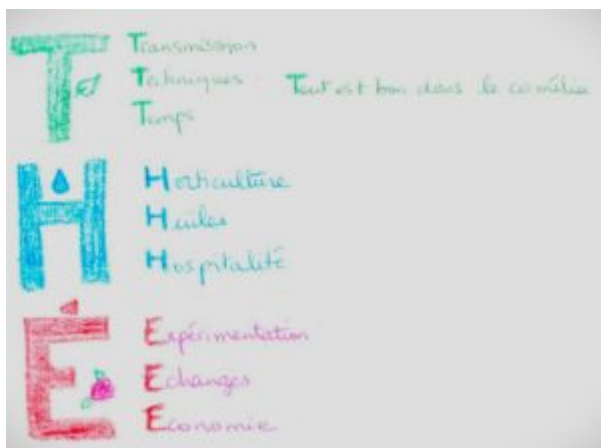 T Transmission
Techniques Tout est bon dans le camélia
Temps
H Horticulture
Huiles
Hospitalité
É Expérimentation
Echanges
Economie